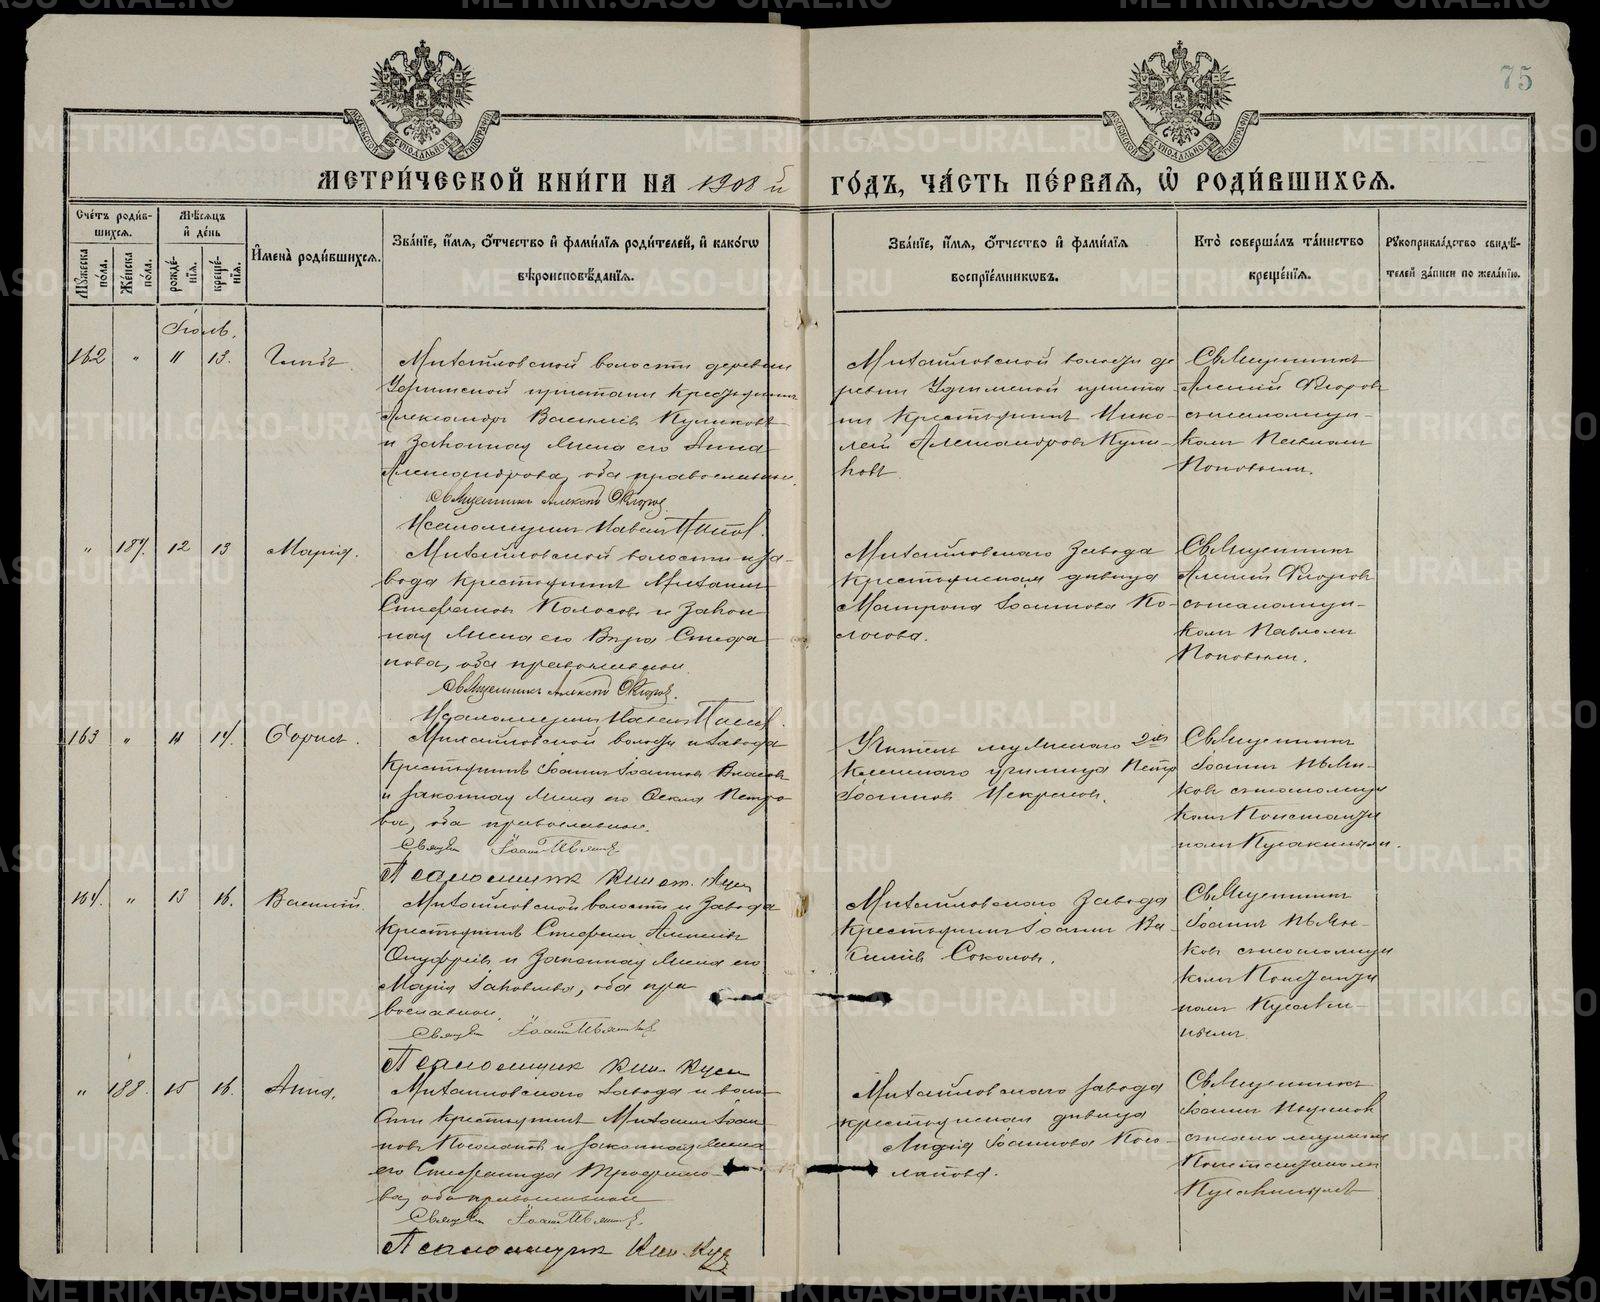 75
МЕТРИ́ЧЕСКОЙ КНИ́ГИ НА 1908 й ГО́ДЪ, ЧА́СТЬ ПЕ́РВАЯ, Ѡ҆ РОДИ́ВШИХСЯ.
Сче́тъ роди́в-
шихся.
Мѣ́сяцъ
и҆ де́нь
Мꙋ́жеска по́ла.
Же́нска по́ла.
рожде́нїя.
креще́нїя.
И҆мена̀ роди́вшихся.
Зва́нїе, и҆́мя, о҆́тчество и҆ фами́лїя роди́телей, и҆ како́гѡ
вѣроисповѣ́данїя.
Зва́нїе, и҆́мя, о҆́тчество и҆ фами́лїя
воспрїе́мникѡвъ.
Кто̀ соверша́лъ та́инство
креще́нїя.
Рꙋкоприкла́дство свидѣ́-
телей за́писи по жела́нїю.
Іюль.
162 " 11 13.
Михайловской волости деревни
Уфимской пристани крестьянинъ
Александръ Василіевъ Куликовъ
и законная жена его Анна
Александрова, оба православные.
Священникъ Алексѣй Флоровъ
Псаломщикъ Павелъ Поповъ.
Михайловской волости де
ревни Уфимской приста
ни крестьянинъ Нико-
лай Александровъ Кули-
ковъ.
Священникъ
Алексій Флоровъ
съ псаломщи-
комъ Павломъ
Поповымъ.
" 187. 12 13 Марія.
Михайловской волости и за-
вода крестьянинъ Михаилъ
Стефановъ Колосовъ и закон-
ная жена его Вѣра Стефа
нова, оба православные.
Священникъ Алексѣй Флоровъ.
Псаломщикъ Павелъ Поповъ.
Михайловскаго завода
крестьянская дѣвица
Матрона Іоаннова Ко-
лосова.
Священникъ
Алексій Флоровъ
съ псаломщи-
комъ Павломъ
Поповымъ.
163 " 11 14. Борисъ.
Михайловской волости и завода
крестьянинъ Іоаннъ Іоанновъ Власовъ
и законная жена его Ѳекла Петро-
ва, оба православные.
Учитель мужского 2хъ
класснаго училища Петръ
Іоанновъ Некрасовъ.
Священникъ
Іоаннъ
съ псаломщи
комъ Константи
номъ
164. " 13 16. Василій.
Михайловской волости и завода
крестьянинъ Стефанъ
Онуфріевъ и законная жена его
Марія Іаковлева, оба пра
вославные.
Псаломщикъ
Михайловскаго завода
крестьянинъ Іоаннъ Ва-
силіевъ Соколовъ.
Священникъ
Іоаннъ
съ псаломщи
комъ Константи
номъ
" 188. 15 16. Анна.
Михайловскаго завода и воло-
сти крестьянинъ Михаилъ Іоан-
новъ Посолаповъ и законная жена
его Стефанида Трофимо-
ва, оба православные
Псаломщикъ
Михайловскаго завода
крестьянская дѣвица
Лидія Іоаннова Косо-
лапова.
Священникъ
Іоаннъ
съ псаломщикомъ
Константиномъ
METRIKI.GASO-URAL.RU